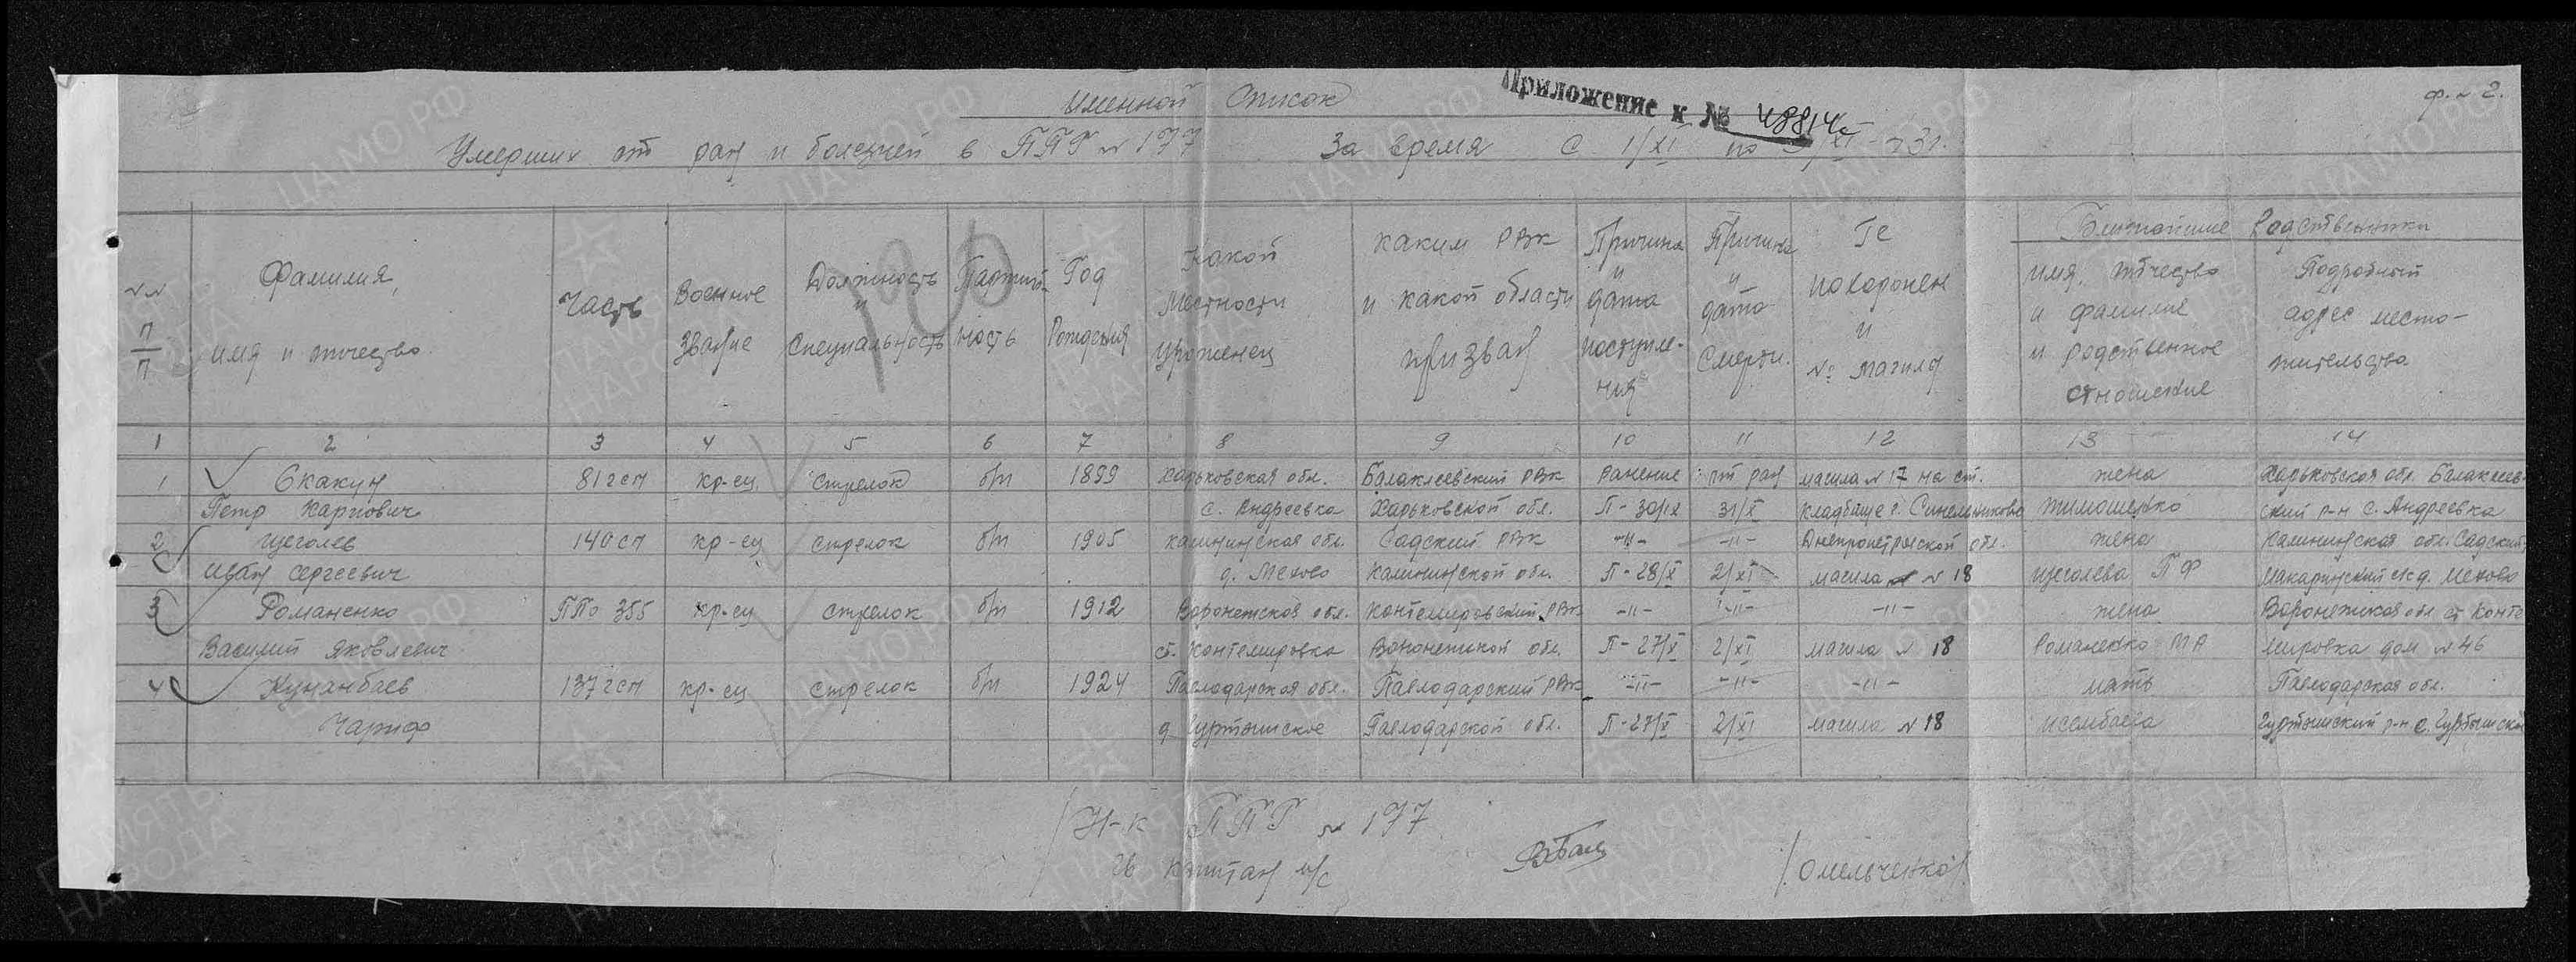 Приложение к № 48814с
ф. № 2.
Именной Список
Умерших от ран и болезней в ППГ № 177 За время с 1/XI по
№№ п/п
Фамилия, имя и отчество
Часть
Военное звание
Должность и специальность
Партийность
Год рождения
Какой местности уроженец
Каким РВК и какой области призван
Причина и дата поступления
Причина и дата смерти.
Где похоронен и № магилы
Ближайшие Родственники
имя, отчество и фамилие и родственное отношение
Подробный адрес место-жительства.
1 2 3 4 5 6 7 8 9 10 11 12 13 14
1 Скакун 81 гсп кр-ец стрелок б/п 1899 Харьковская обл. Балаклеевский РВК Ранение от ран магила № 17 на ст. жена Харьковская обл. Балаклеев-
Петр Карпович с. Андреевка Харьковской обл. П-30/IX 31/X кладбище г. Синельниково Тимошенко ский р-н с. Андреевка
2 Щеголев 140 сп кр-ец стрелок б/п 1905 Калининская обл. Садский РВК -"- -"- Днепропетровской обл. жена Калининская обл. Садский
Иван Сергеевич д. Мехово Калининской обл. П-28/X 2/XI магила № 18 Щеголева П Ф Макаринский с/с д. Мехово
3 Романенко ППо 355 кр-ец стрелок б/п 1912 Воронежская обл. Контемировский РВК -"- -"- -"- жена Воронежская обл ст. Конте
Василий Яковлевич ст. Контемировка Воронежской обл. П-27/X 2/XI магила № 18 Романенко М А мировка дом № 46
4 Кунанбаев 137 гсп кр-ец стрелок б/п 1924 Павлодарская обл. Павлодарский РВК -"- -"- -"- мать Павлодарская обл.
Чариф д. Цуртышское Павлодарской обл. П-27/X 2/XI магила № 18 Исембаева Цуртышский р-н с. Цуртышское
190
/Н-к ППГ № 177
гв капитан м/с /Омельченко/